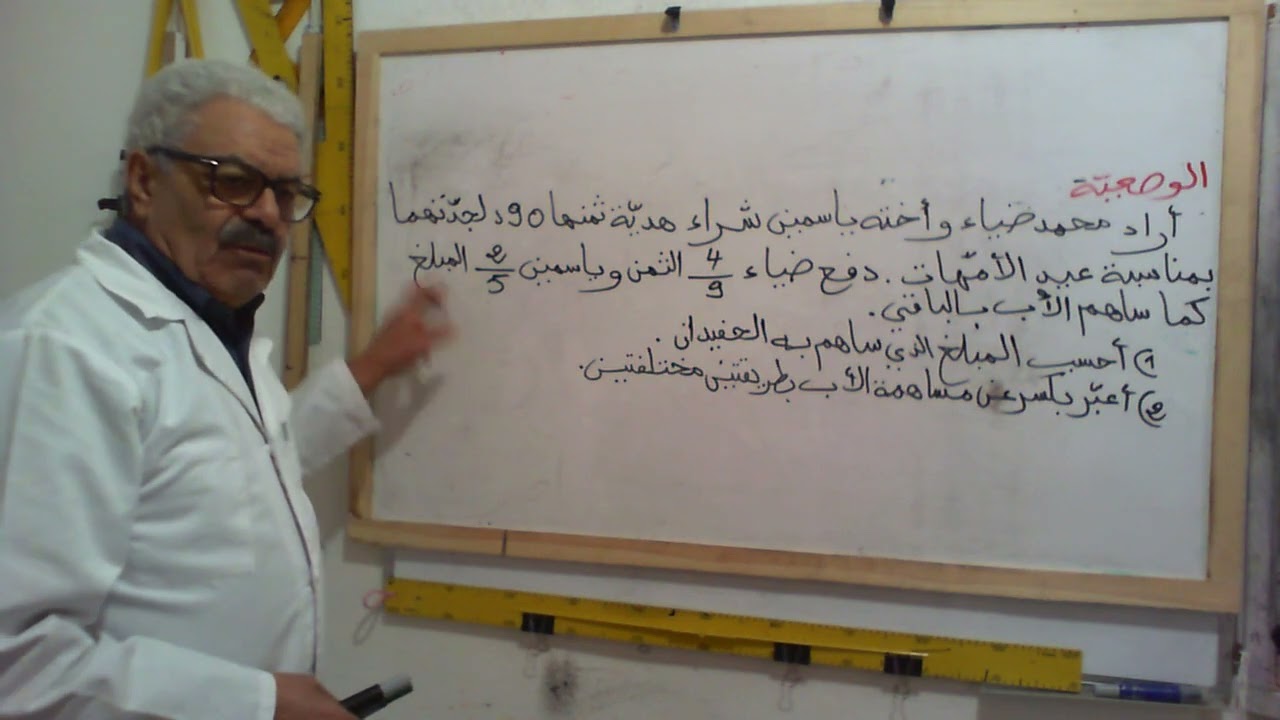 الوضعيّة
أراد محمد ضياء وأخته ياسمين شراء هديّة ثمنها 90د لجدّتهما
بمناسبة عيد الأمّهات. دفع ضياء 4/9 الثمن وياسمين 2/5 المبلغ
كما ساهم الأب بالباقي.
1) أحسب المبلغ الذي ساهم به الحفيدان.
2) أعبّر بكسر عن مساهمة الأب بطريقتين مختلفتين.